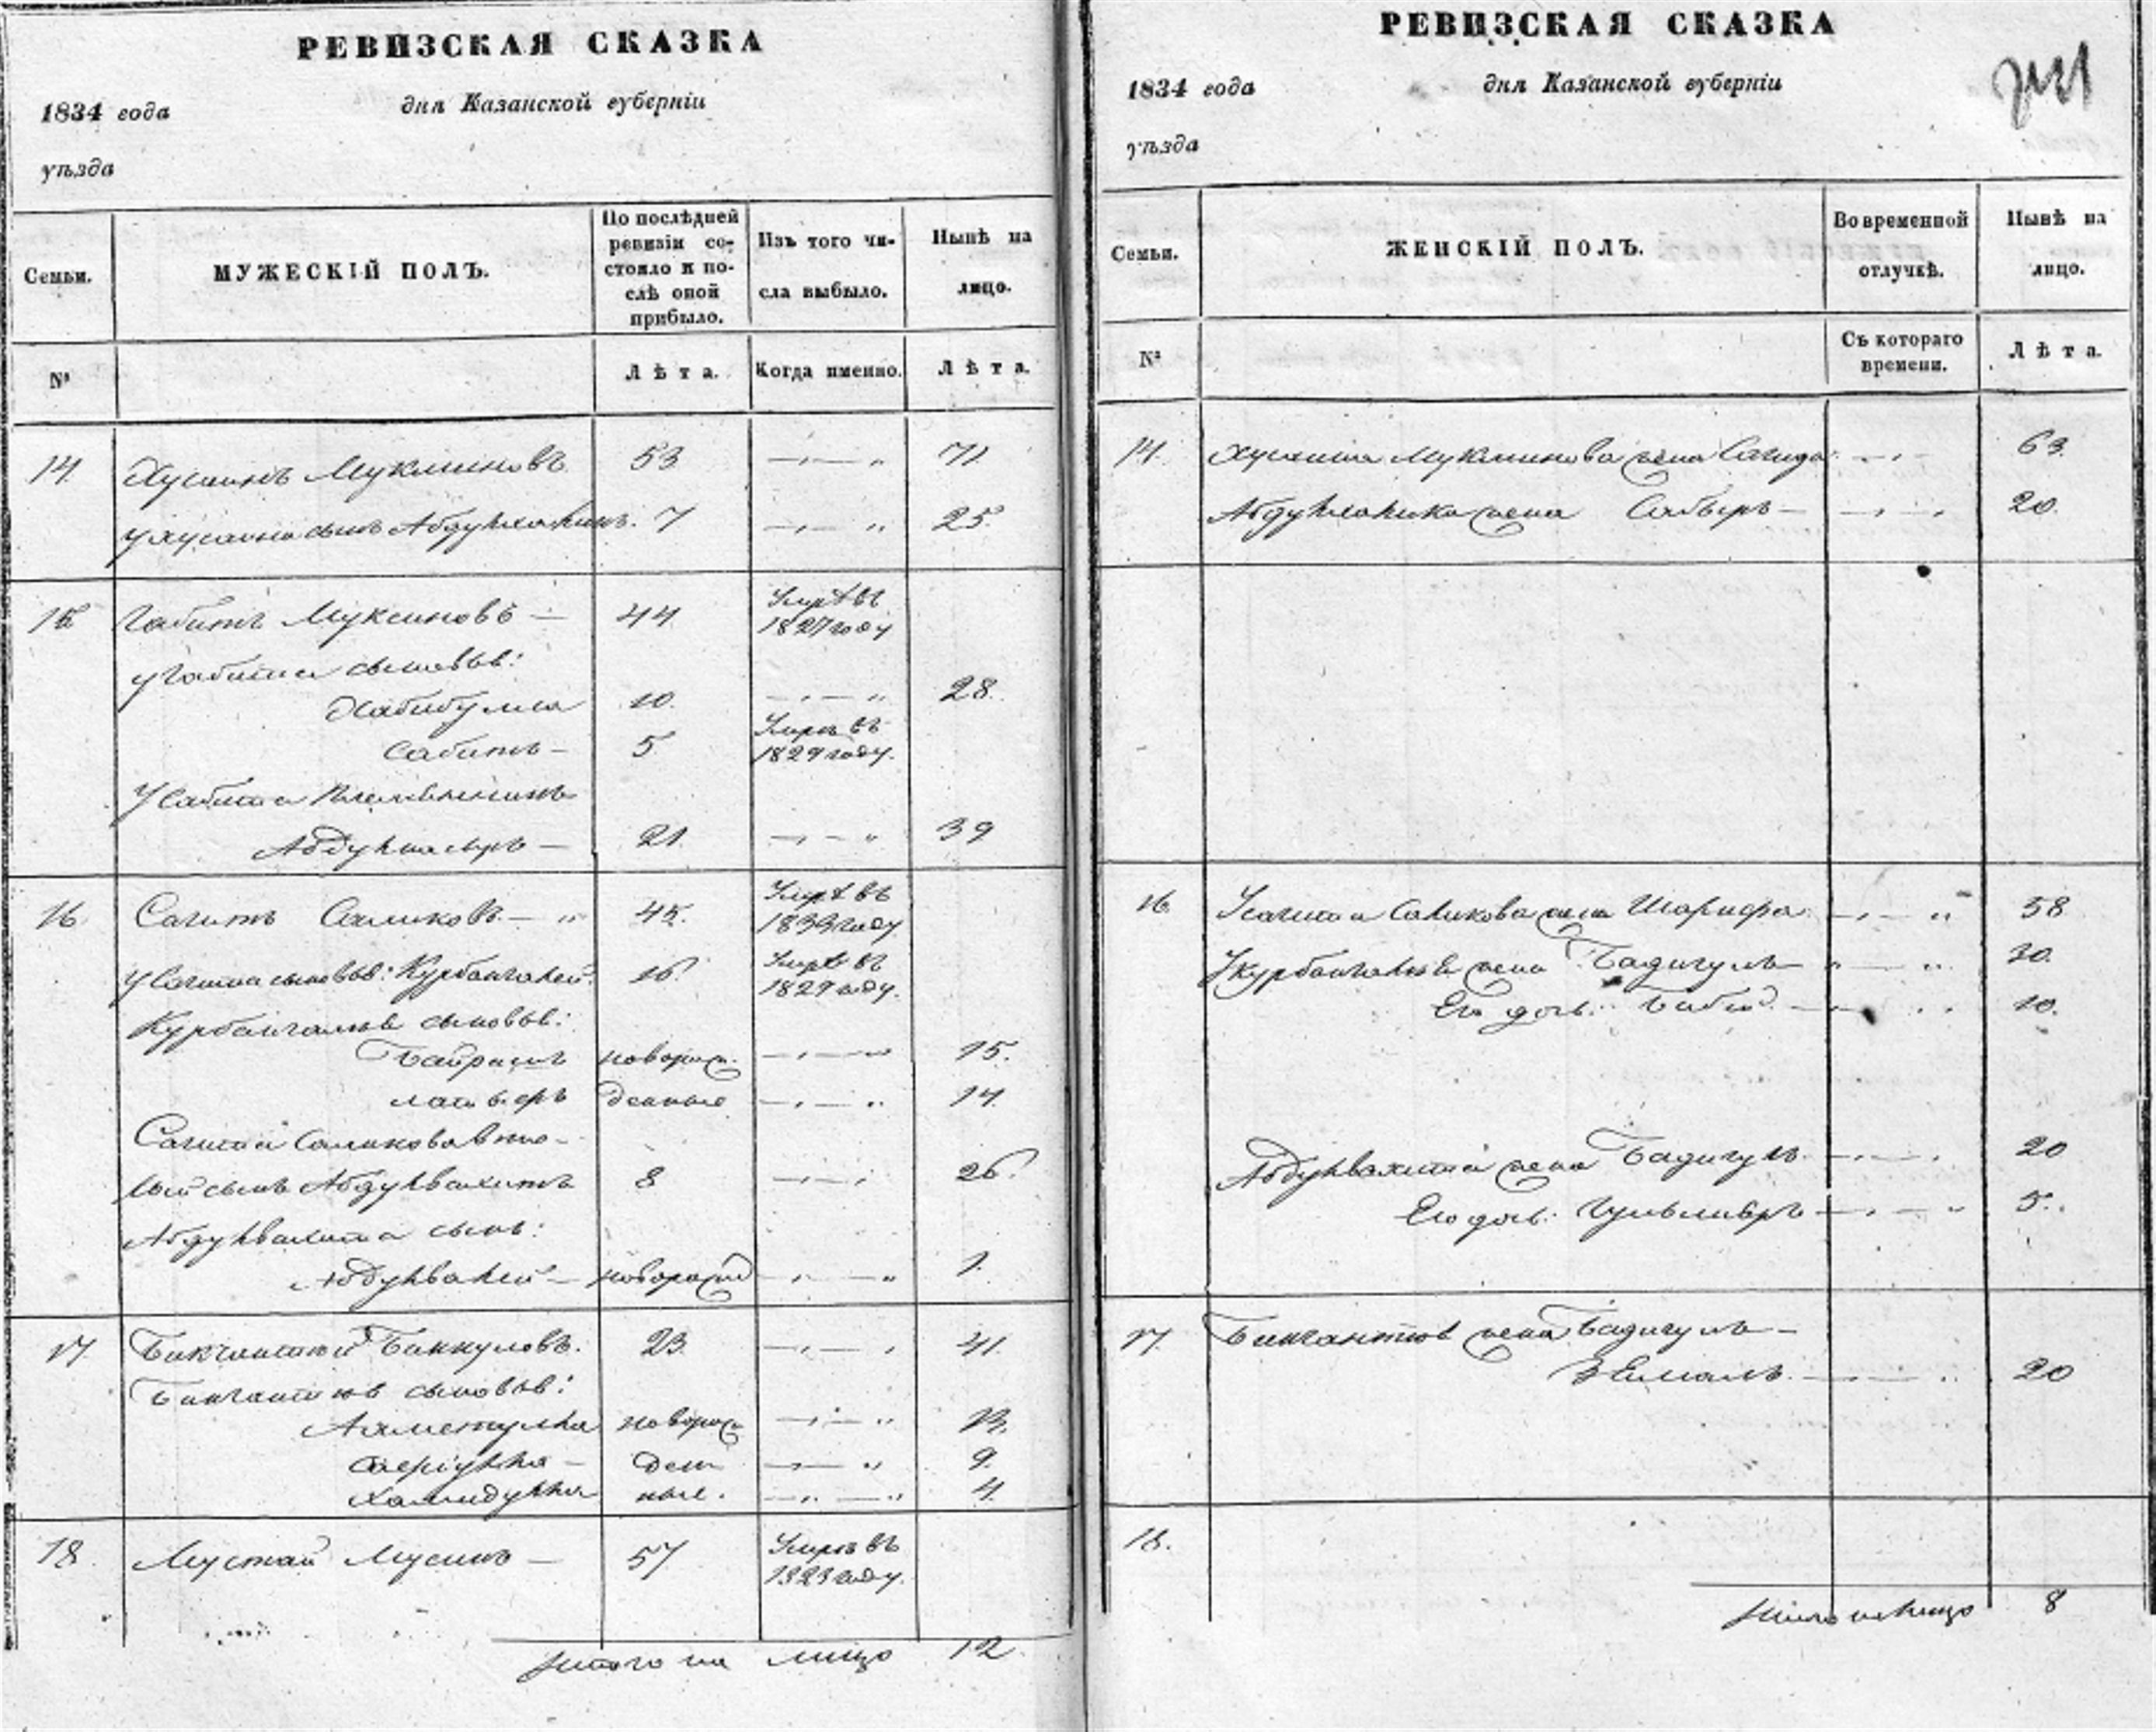 РЕВИЗСКАЯ СКАЗКА
1834 года дня Казанской губерніи
уѣзда
Семьи.
МУЖЕСКІЙ ПОЛЪ.
По послѣдней
ревизіи со-
стояло и по-
слѣ оной
прибыло.
Изъ того чи-
сла выбыло.
Нынѣ на
лицо.
№
Лѣта.
Когда именно.
Лѣта.
14 Хусаинъ Муклиновъ 53 71
у Хусаина сынъ 7 25
15 Габитъ Муксиновъ 44 Умре въ
1827 году
у Габита сыновья:
Хабибулла 10. 28.
Сабитъ 5 Умре въ
1829 году.
У Габита племянникъ
21 39
16 Сагитъ Саликовъ 45. Умре въ
1833 году.
у Сагита сыновья: Курбангалей 16 Умре въ
1829 году.
Курбангалея сыновья:
Байрамъ новорож- 15.
денные 14
Сагита Саликова вто-
рой сынъ Абдулвахитъ 8 26
Абдулвахита сынъ:
Абдулвалей новорожд 1.
17 Биккуловъ. 23 41
сыновья:
Ахметулла новорож
ден 9.
Хамидулла ные. 4.
18 Мустай Мусинъ 57 Умре въ
1823 году.
Итого на лицо 12
РЕВИЗСКАЯ СКАЗКА
1834 года дня Казанской губерніи
уѣзда
Семьи.
ЖЕНСКІЙ ПОЛЪ.
Во временной
отлучкѣ.
Нынѣ на
лицо.
№
Съ котораго
времени.
Лѣта.
14. Хусаина Муклинова жена Сагида 63.
жена 20.
16 У Сагита Саликова жена Шарифа 58
У Курбангалея жена Бадигуль 30.
Его дочь: 10.
Абдулвахита жена Бадигуль 20
Его дочь: 5.
17. жена Бадигуль
20
18.
Итого на лицо 8